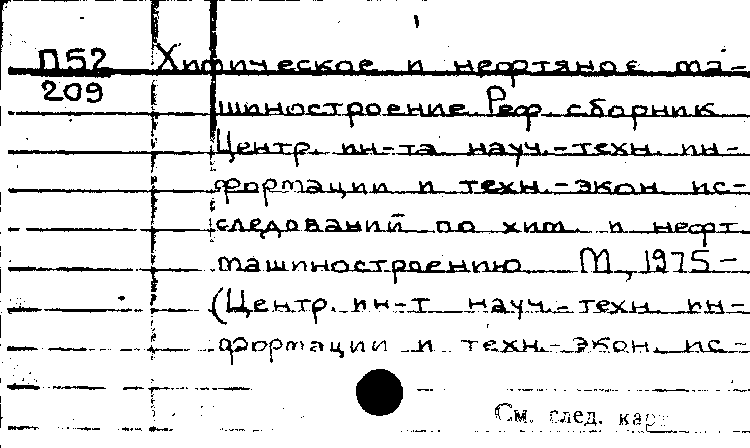 П52 Химическое и нефтяное ма-
209 шиностроение Реф. сборник
Центр. ин-та науч.-техн. ин-
формации и техн.-экон. ис-
следований по хим. и нефт.
машиностроению М., 1975-
(Центр. ин-т науч.-техн. ин-
формации и техн.-экон. ис-
См. след. карт